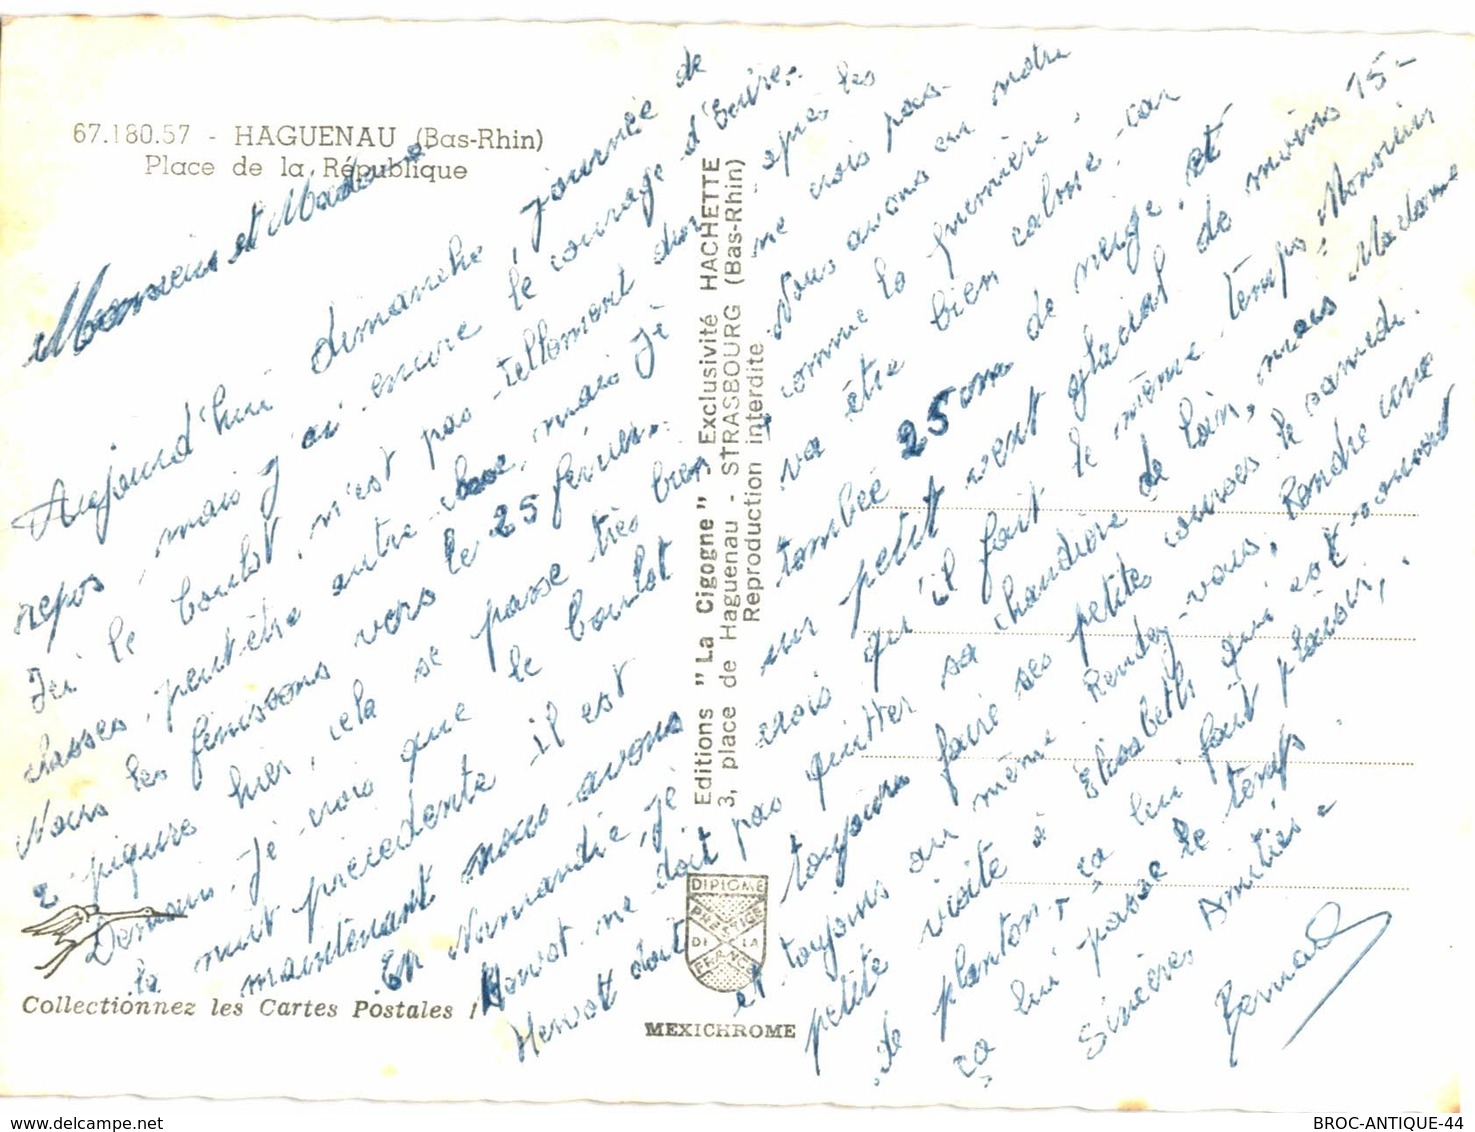 67.180.57 - HAGUENAU (Bas-Rhin)
Place de la République
Monsieur et Madame
Aujourd'hui dimanche journée de
repos mais j'ai encore le courage d'écrire.
Ici le boulot, n'est pas tellement dur après les
classes, peut être autre chose, mais je ne crois pas.
Nous les finissons vers le 25 février. Nous avons eu notre
2 piqure hier, cela se passe très bien comme la première.
Demain je crois que le boulot va être bien calme car
la nuit précedente il est tombée 25 cm de neige. et
maintenant nous avons un petit vent glacial de moins 15-
En Normandie, je crois qu'il fait le même temps, Monsieur
Hervot ne doit pas quitter sa chaudière de loin, mais Madame
Hervot doit toujours faire ses petites courses le samedi.
et toujours au même Rendez-vous, Rendre une
petite visite à Elisabeth qui est souvent
de planton, ça lui fait plaisir,
ça lui passe le temps.
Sincères Amitiés
Bernard
Editions "La Cigogne" - Exclusivité HACHETTE
3, place de Haguenau - STRASBOURG (Bas-Rhin)
Reproduction interdite
DIPLOME
PRESTIGE
DE LA
FRANCE
MEXICHROME
Collectionnez les Cartes Postales !
BROC-ANTIQUE-44